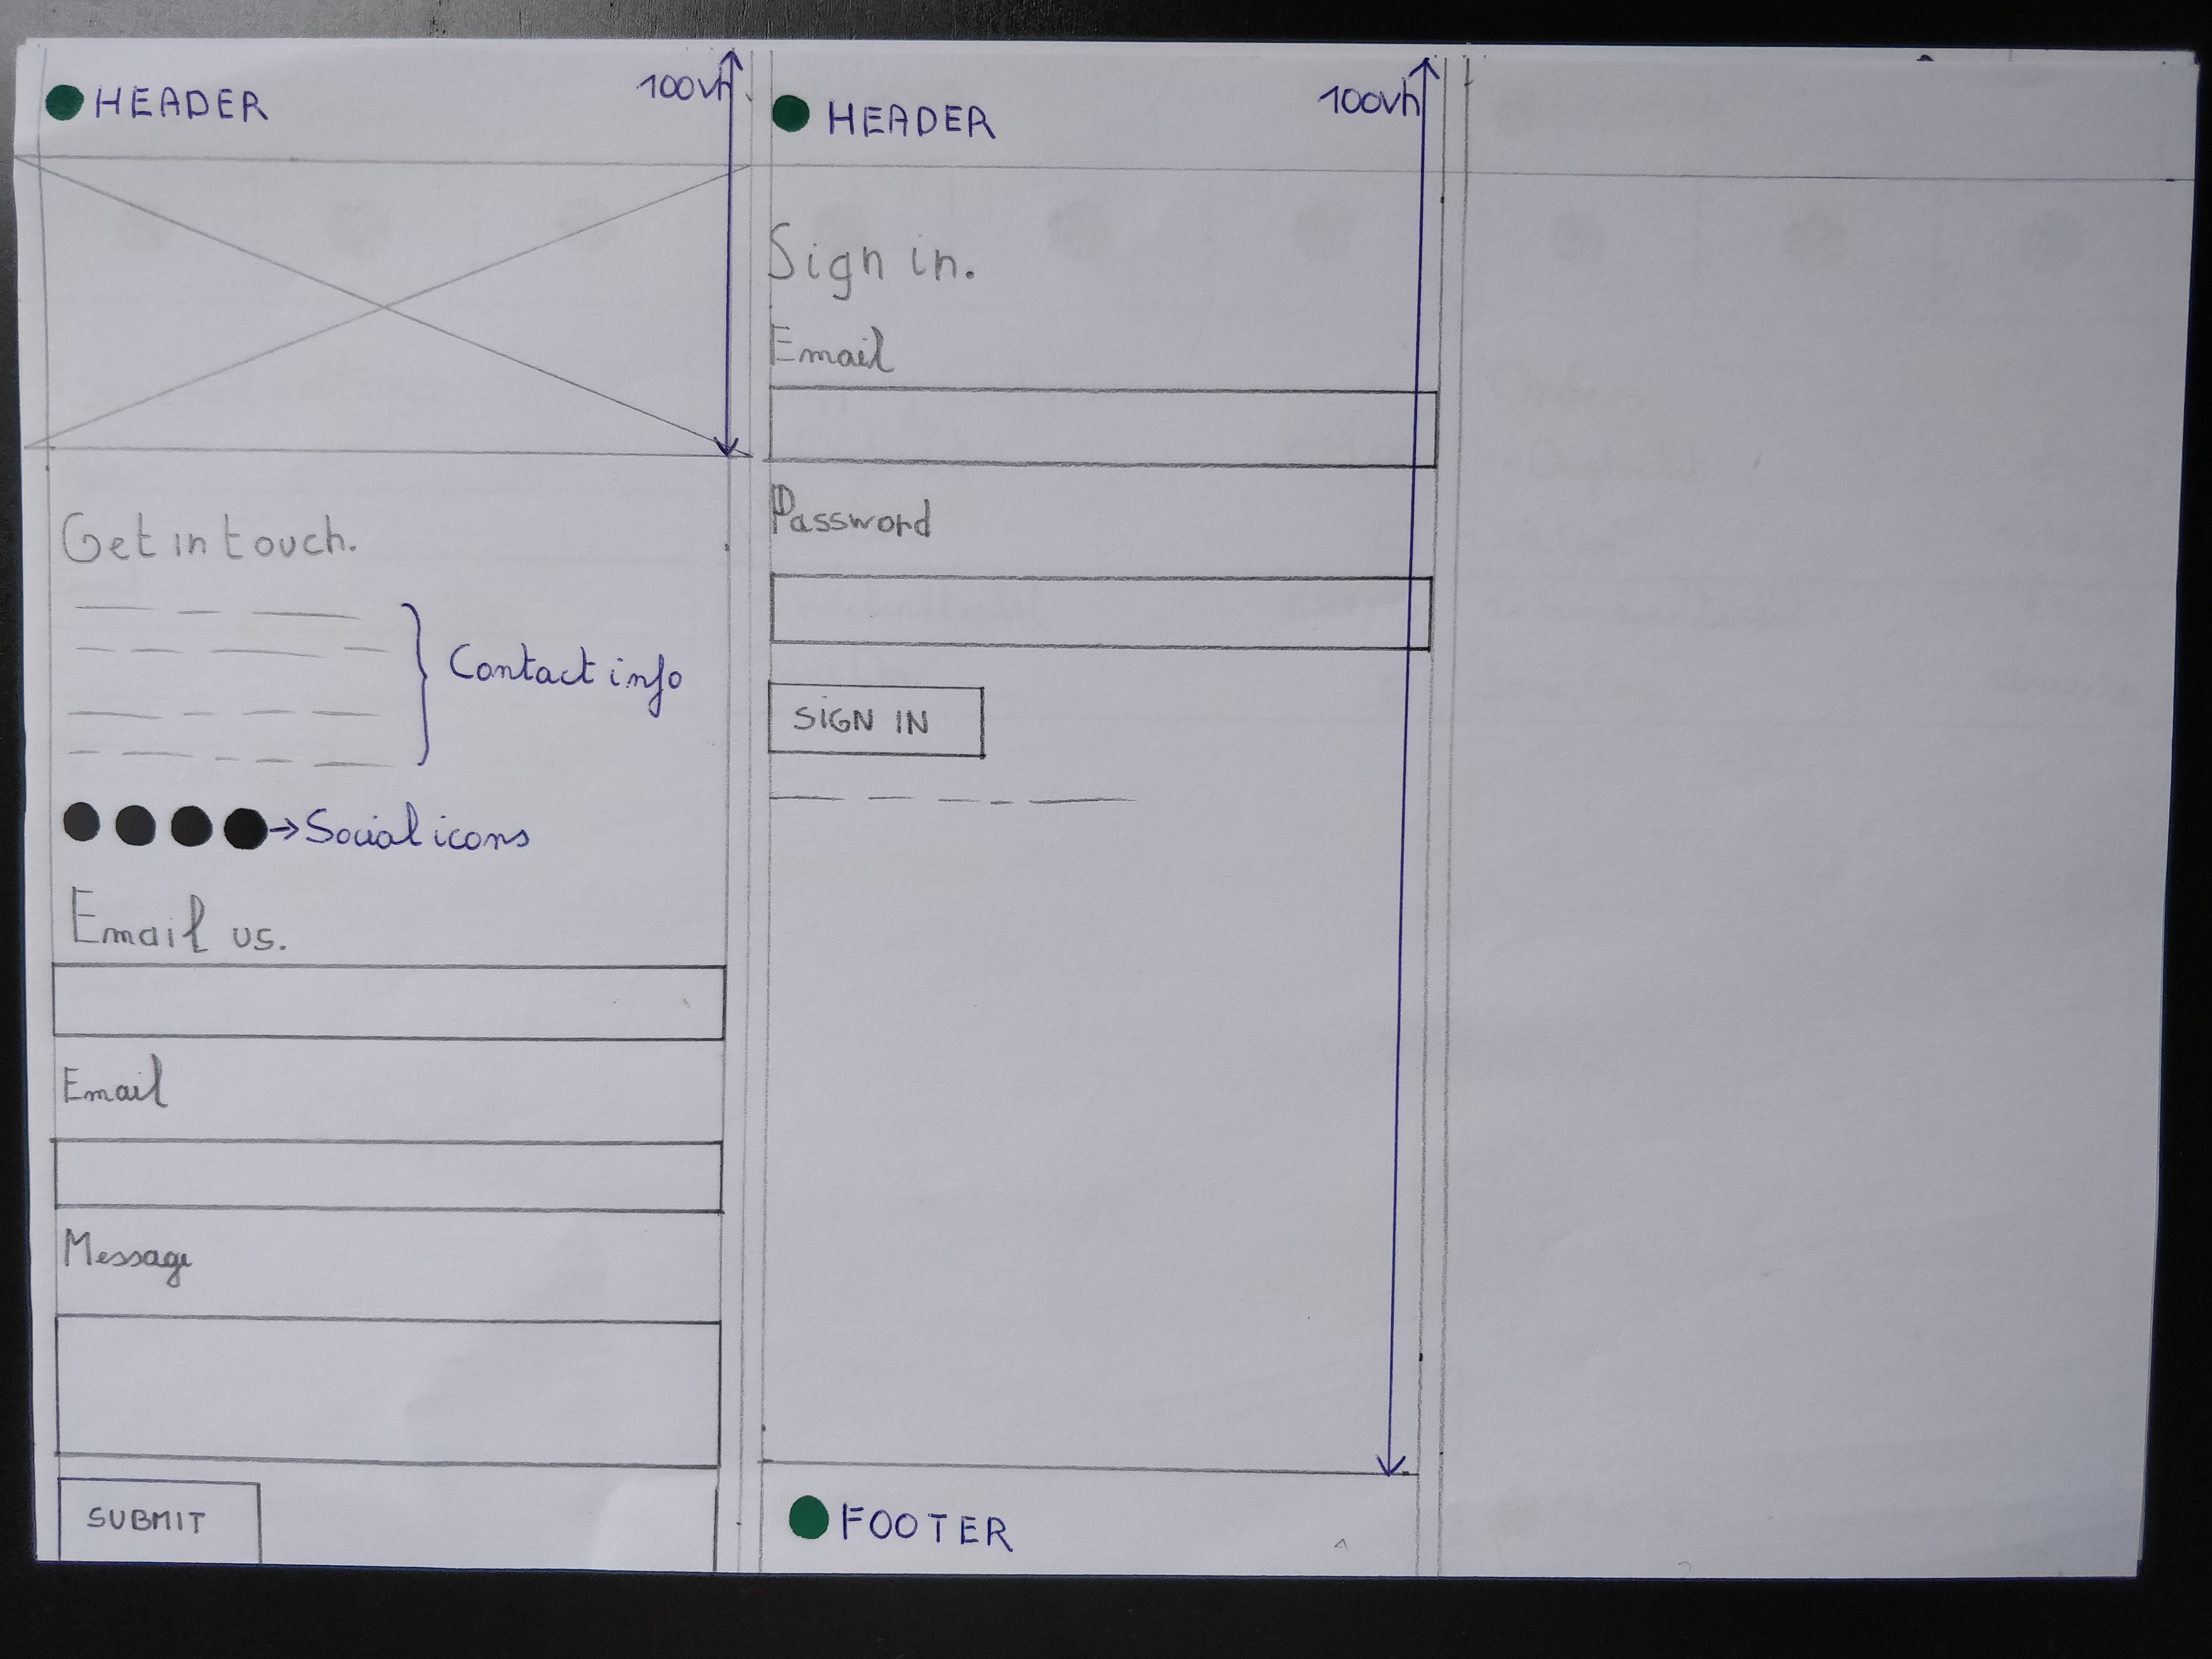 HEADER
100vh
Get in touch.
Contact info
Social icons
Email us.
Email
Message
SUBMIT
HEADER
100vh
Sign in.
Email
Password
SIGN IN
FOOTER